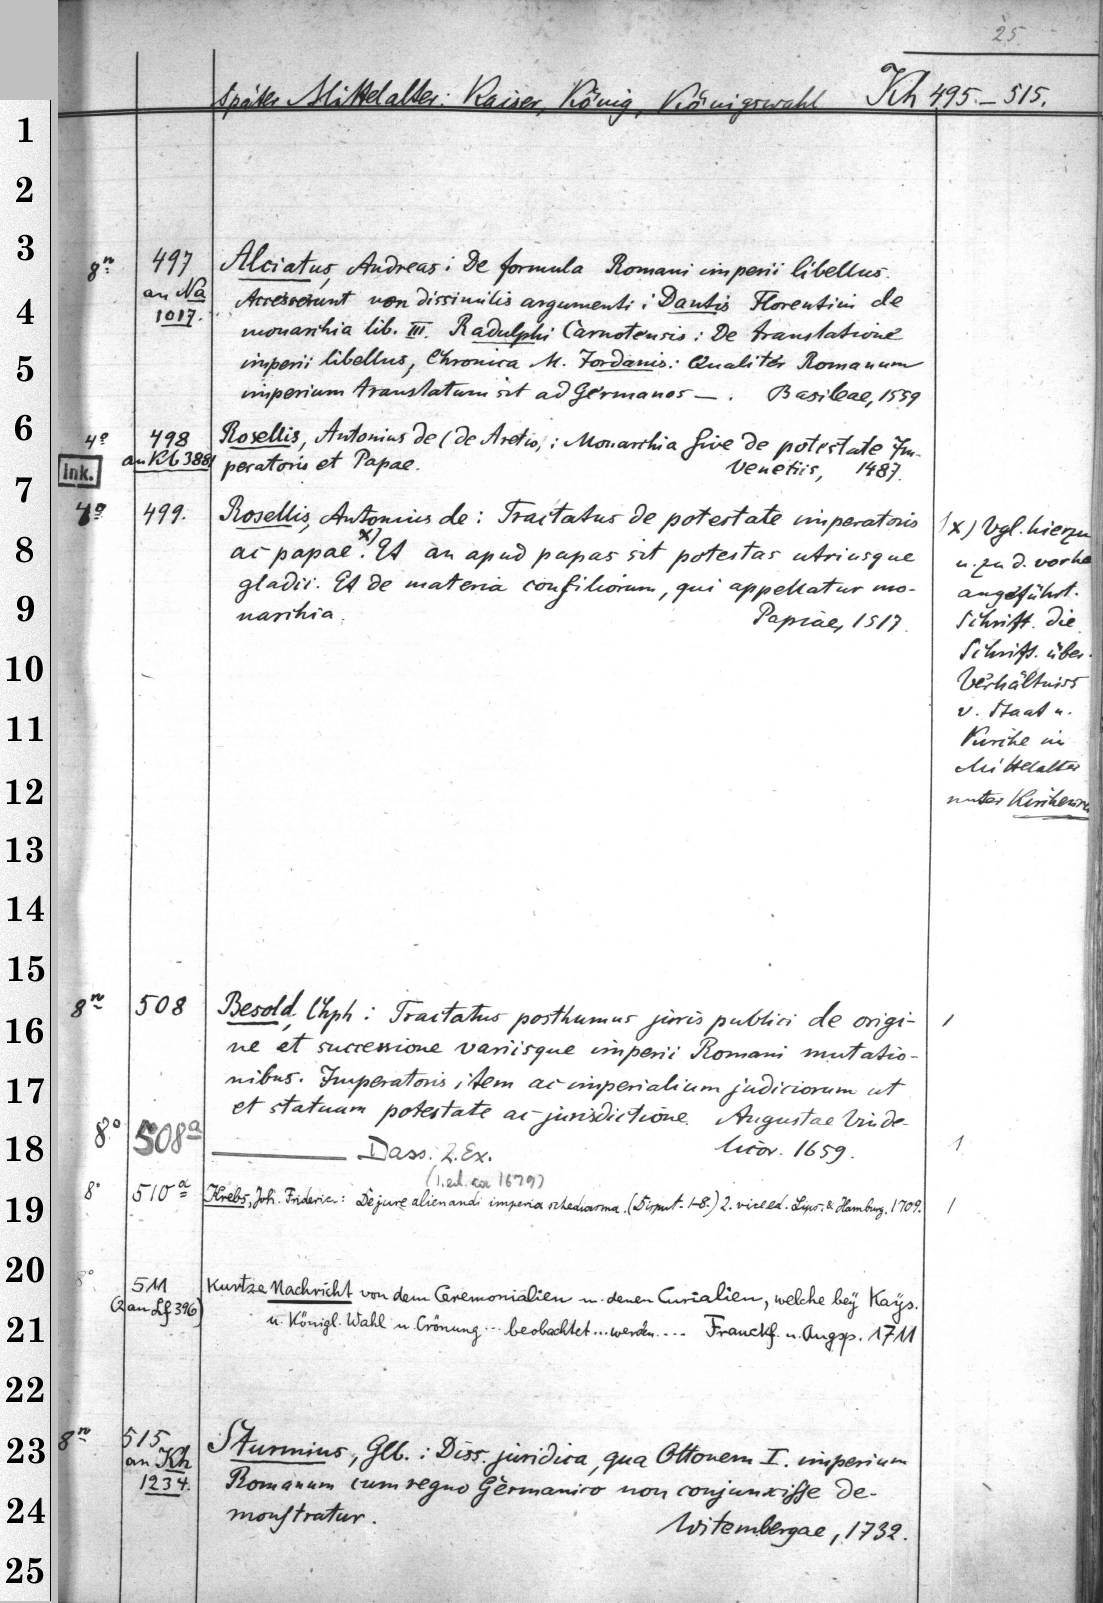 25
Später Mittelalter: Kaiser, König, Königswahl Kh 495.–515.
1
2
3
8n 497 Alciatus, Andreas: De formula Romani imperii libellus.
an Na Accesserunt non dissimilis argumenti: Dantis Florentini de
4
1017. monarchia lib. III. Radulphi Carnotensis: De translatione
5
imperii libellus, Chronica M. Jordanis: Qualiter Romanum
imperium translatum sit ad Germanos —. Basileae, 1559
6
4o 498 Rosellis, Antonius de (de Aretio): Monarchia sive de potestate Im-
Ink. an Kb 3881 peratoris et Papae. Venetiis, 1487.
7
4o 499. Rosellis, Antonius de: Tractatus de potestate imperatoris
ac papae x). Et an apud papas sit potestas utriusque
8
gladii. Et de materia consiliorum, qui appellatur mo-
9
narchia. Papiae, 1517.
x) Vgl. hierzu
u. zu d. vorhe
angeführt.
Schrift. die
Schrift. über
Verhältniss
v. Staat u.
Kirche im
Mittelalter
unter Kirchenre
10
11
12
13
14
15
8n 508 Besold, Chph: Tractatus posthumus juris publici de origi- 1
16
ne et successione variisque imperii Romani mutatio-
17
nibus. Imperatoris item ac imperialium judiciorum ut
et statuum potestate ac jurisdictione. Augustae Vinde-
licor. 1659.
18
8o 508a ——— Dass. 2. Ex. 1
(1. ed. ca 1679)
19
8o 510a Krebs, Joh. Frideric.: De jure alienandi imperia schediasma. (Disput. 1-8.) 2. vice ed. Lips. & Hamburg. 1709. 1
20
8o 511 Kurtze Nachricht von dem Ceremonialien u. denen Curialien, welche bey Kays.
(2 an Lf 396) u. Königl. Wahl u. Crönung ... beobachtet ... werden .... Franckf. u. Augsp. 1711
21
22
23
8n 515 Sturmius, Glb.: Diss. juridica, qua Ottonem I. imperium
an Kh Romanum cum regno Germanico non conjunxisse de-
1234. monstratur. Witembergae, 1732.
24
25